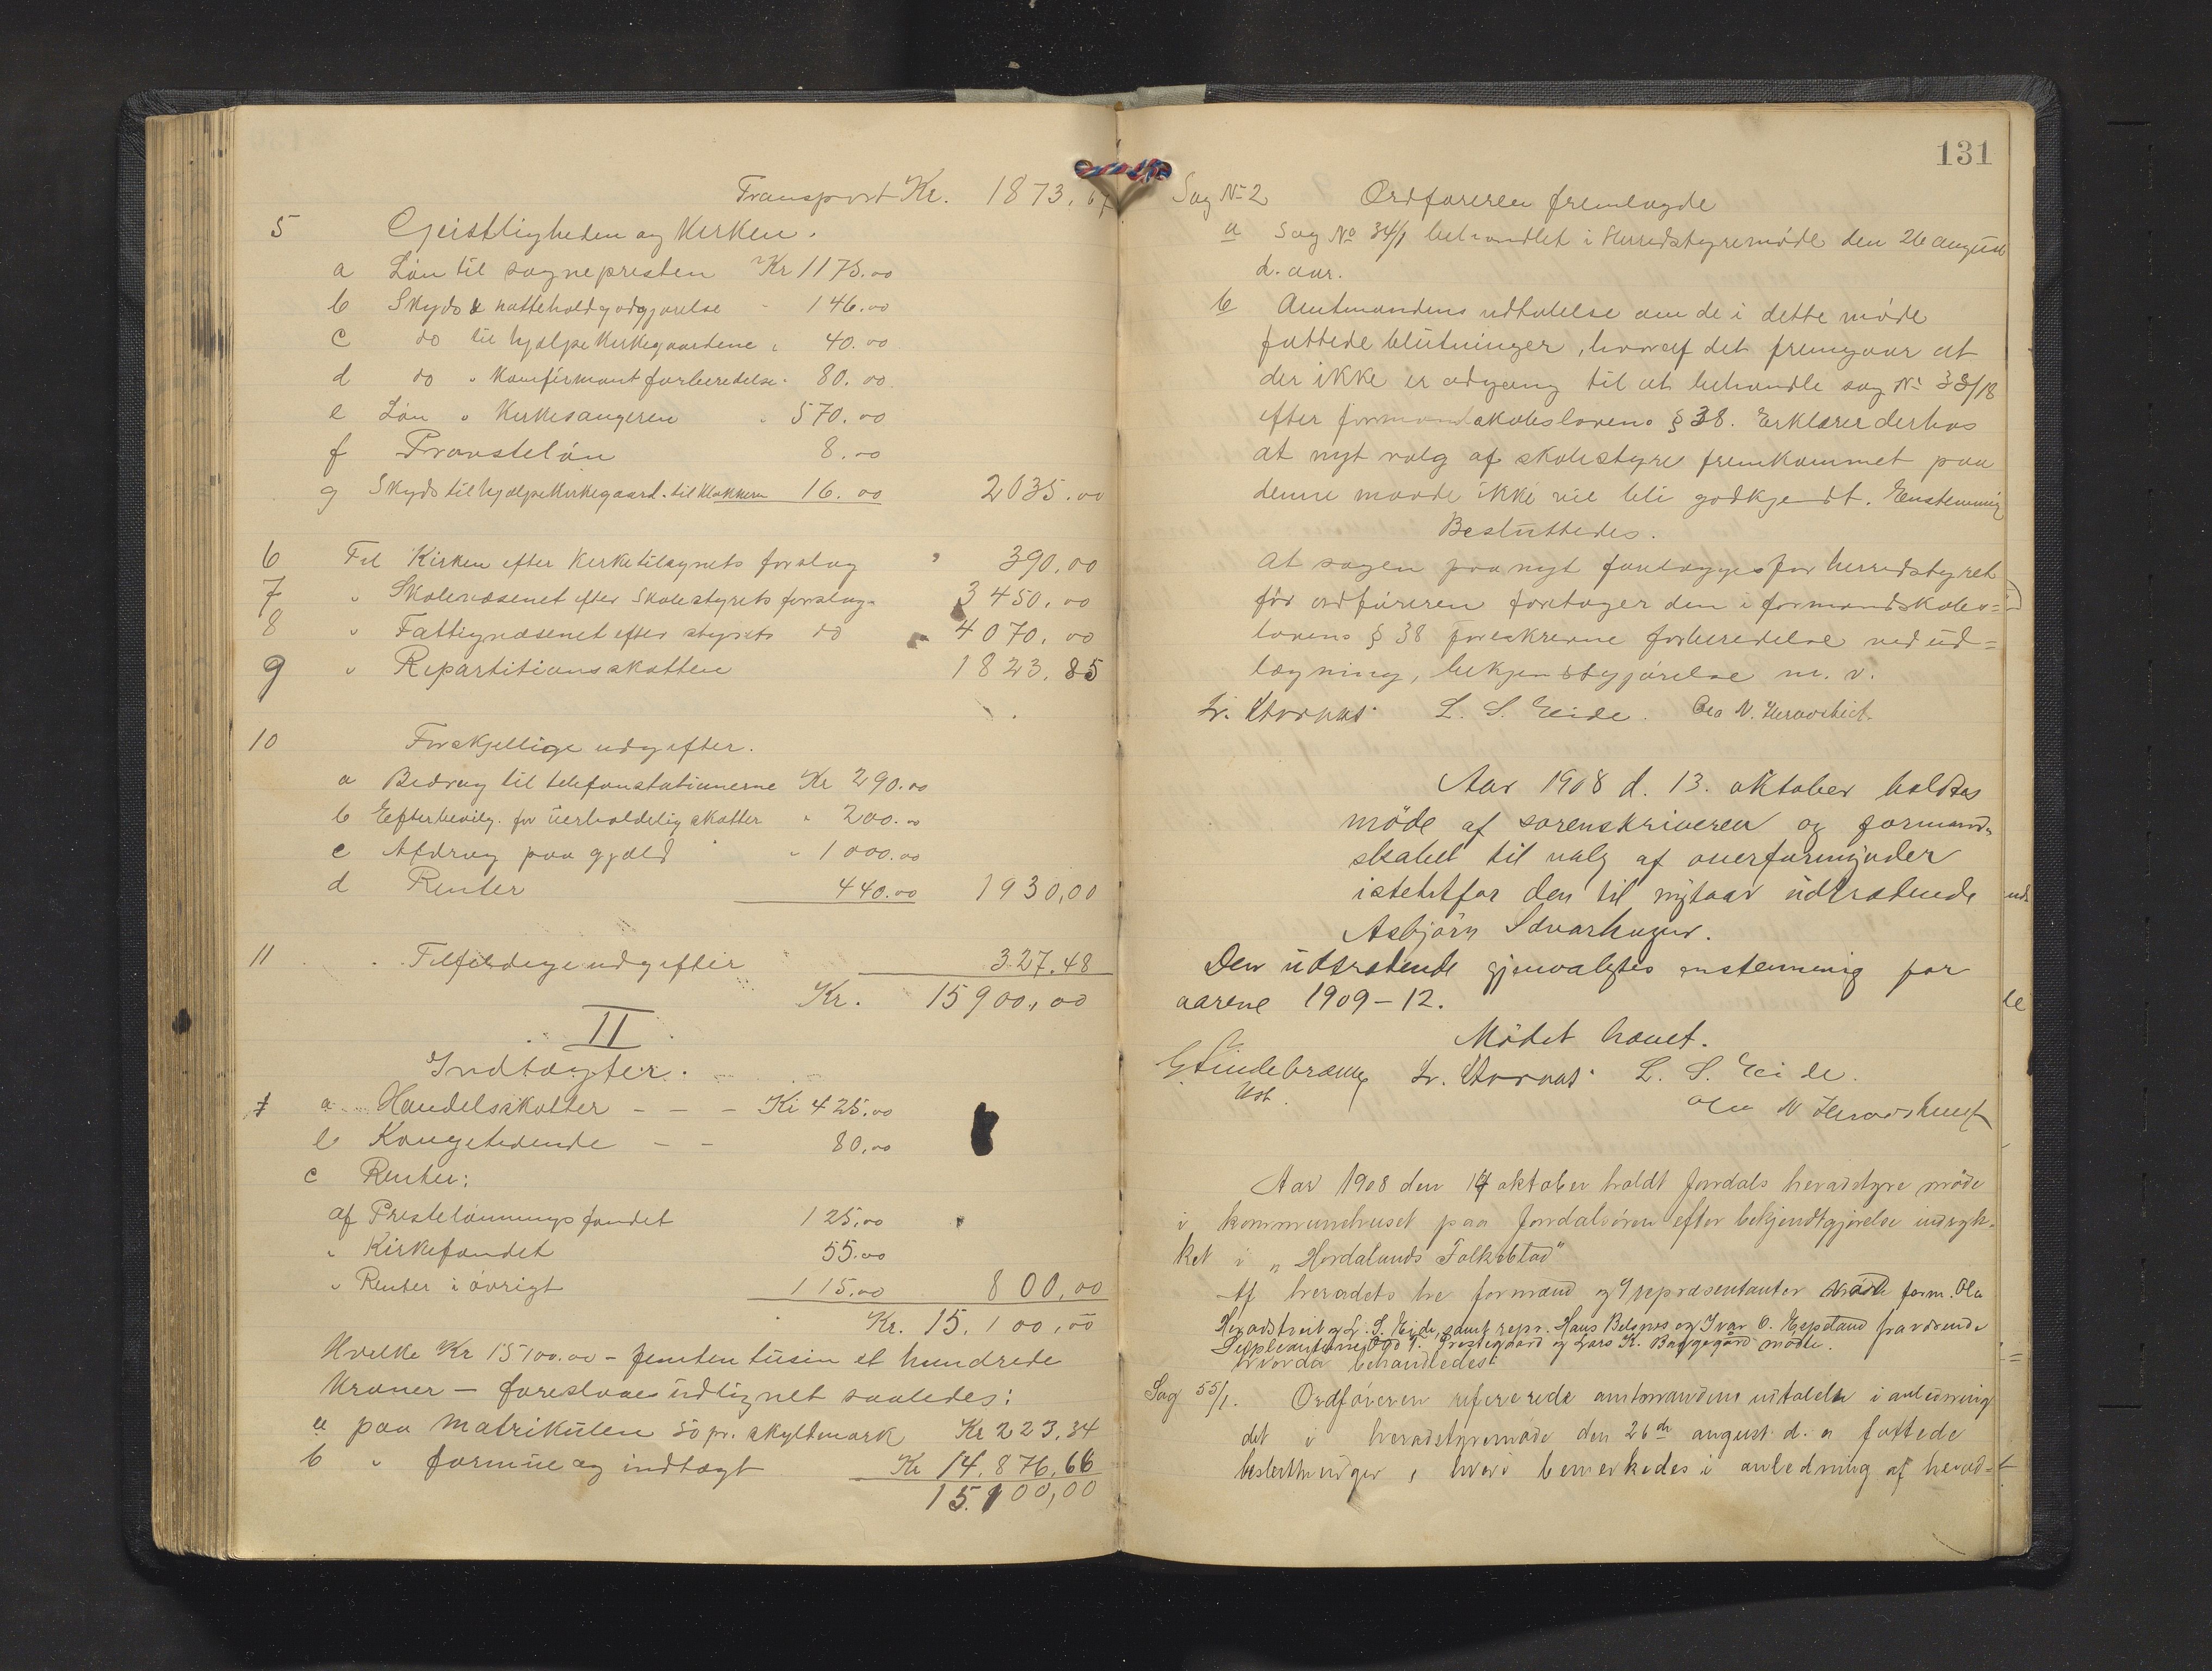 Transport Kr. 1873.67
5 Geistligheden og Kirken.
a Løn til sognepresten Kr 1175.00
b Skyds & natteholdgodtgjørelse - 146.00
c do til hjælpekirkegaardene " 40.00
d do " Konfirmantforberedelse - 80.00
e Løn " Kirkesangeren " 570.00
f Provsteløn 8.00
g Skyds til hjælpekirkegaard. til klokkeren 16.00 2035.00
6 Til Kirken efter Kirketilsynets forslag " 390.00
7 " Skolevæsenet efter Skolestyrets forslag 3450.00
8 " Fattigvæsenet efter styrets do " 4070.00
9 " Repartitionsskatten 1823.85
10 Forskjellige udgifter.
a Bidrag til telefonstationerne Kr 290.00
b Efterbevilg. for uerholdelig skatter " 200.00
c Afdrag paa gjæld " 1000.00
d Renter 440.00 1930,00
11 Tilfeldige udgifter 327.48
Kr. 15900,00
II
Indtægter.
1 a Handelsskatter - - - Kr 425.00
b Kongetiende - - 80,00
c Renter:
af Prestelønningsfondet 125,00
" Kirkefondet 55.00
" Renter i øvrigt 115.00 800,00
Kr. 15.100,00
Hvilke Kr 15100.00 - femten tusin et hundrede
kroner - foreslaaes udlignet saaledes:
a paa matrikulen 50 pr. skyldmark Kr 223,34
b " formue og indtægt Kr 14.876,66
15.100,00
131
Sag No 2 Ordføreren fremlagde
a Sag No 34/1 behandlet i Herredstyremøde den 26 august
d. aar.
b Amtmandens udtalelse om de i dette møde
fattede beslutninger, hvoraf det fremgaar at
der ikke er adgang til at behandle sag No 33/18
efter formandskabslovens § 38. Erklærer derhos
at nyt valg af skolestyre fremkommet paa
denne maade ikke vil bli godkjendt. Enstemmig
Besluttedes.
at sagen paa nyt forelægges for herredstyret
før ordføreren foretager den i formandskabs=
lovens § 38 foreskrevne forberedelse ved ud=
lægning, bekjendtgjørelse m. v.
L. S. Eide. Ola N. Heradstveit
Aar 1908 d. 13. oktober holdtes
møde af sorenskriveren og formand-
skabet til valg af overformynder
istedetfor den til nytaar udtrædende
Asbjørn Samarhaugur.
Den udtrædende gjenvalgtes enstemmig for
aarene 1909-12.
Mødet hævet.
L. S. Eide.
Ola N. Heradstveit
Aar 1908 den 14 oktober holdt Jondals heradstyre møde
i kommunehuset paa Jondalsøren efter bekjendtgjørelse indryk-
ket i "Hordalands Folkeblad"
Af heradets tre formænd og 9 repræsentanter møtte form. Ola
Heradstveit og L. S. Eide, samt repr. Hans Belsnes og Ivar O. Espeland fraværende
Suppleanterne Odd T. Prestegaard og Lars K. Bakkegård mødte.
hvorda behandledes:
Sag 55/1. Ordføreren refererede amtmandens udtalelse i anledning
det i heradstyremøde den 26de august d. a fattede
beslutninger, hvori bemerkedes i anledning af herad-